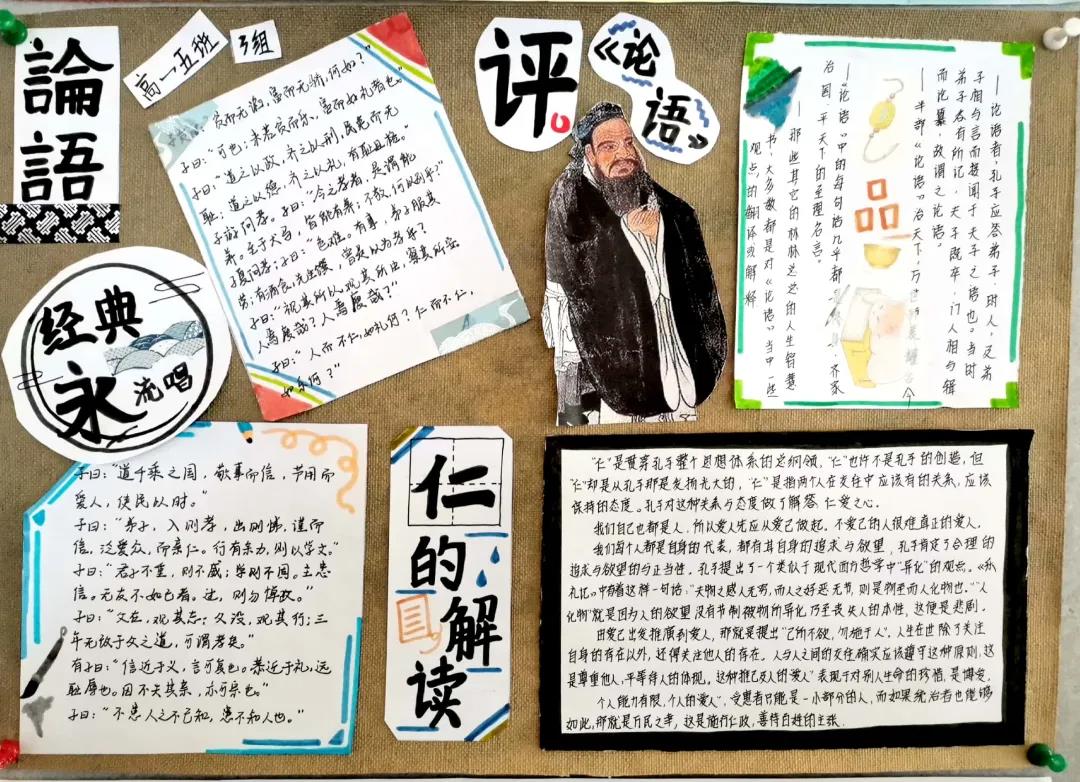 論語
高一五班
3组
贫而无谄，富而无骄，何如？”
子曰：“可也；未若贫而乐，富而好礼者也。”
子曰：“道之以政，齐之以刑，民免而无
耻；道之以德，齐之以礼，有耻且格。”
子游问孝。子曰：“今之孝者，是谓能
养。至于犬马，皆能有养；不敬，何以别乎？”
子夏问孝；子曰：“色难。有事，弟子服其
劳；有酒食，先生馔，曾是以为孝乎？
子曰：“视其所以，观其所由，察其所安
人焉廋哉？人焉廋哉？”
子曰：“人而不仁，如礼何？人而不仁，
如乐何？”
评
《论
语》
——论语者，孔子应答弟子，时人，及弟
子相与言而接闻于夫子之语也。当时
弟子各有所记，夫子既卒，门人相与辑
而论纂，故谓之论语。
——半部《论语》治天下，万
——《论语》中的每句语几乎都
治国、平天下的至理名言。
——那些其它的林林总总的人生智慧
书，大多数都是对《论语》当中一些
观点的翻译或解释
经典
永
流唱
子曰：“道千乘之国，敬事而信，节用而
爱人，使民以时。”
子曰：“弟子，入则孝，出则悌，谨而
信，泛爱众，而亲仁。行有余力，则以学文。”
子曰：“君子不重，则不威；学则不固。主忠
信。无友不如己者。过，则勿惮改。”
子曰：“父在，观其志；父没，观其行；三
年无改于父之道，可谓孝矣。”
有子曰：“信近于义，言可复也。恭近于礼，远
耻辱也。因不失其亲，亦可宗也。”
子曰：“不患人之不己知，患不知人也。”
仁
的
解
读
“仁”是贯穿孔子整个思想体系的总纲领，“仁”也许不是孔子的创造，但
“仁”却是从孔子那是发扬光大的，“仁”是指两个人在交往中应该有的关系，应该
保持的态度。孔子对这种关系与态度做了解答：仁爱之心。
我们自己也都是人，所以爱人先应从爱己做起，不爱己的人很难真正的爱人。
我们每个人都是自身的代表，都有其自身的追求与欲望，孔子肯定了合理的
追求与欲望的与正当性。孔子提出了一个类似于现代西方哲学中“异化”的观点。《
礼记》中有着这样一句话：“夫物之感人无穷，而人之好恶无节，则是物至而人化物也。”“人
化物”就是因为人的欲望没有节制被物所异化乃至丧失人的本性，这便是悲剧。
由爱己出发推廣到爱人，那就是提出“己所不欲，勿施于人”。人生在世除了关注
自身的存在以外，还得关注他人的存在。人与人之间的交往确实应该遵守这种原则，这
是尊重他人、平等待人的体现。这种推己及人的“爱人”表现于对别人生命的珍惜，是博爱。
个人能力有限，个人的“爱人”，受惠者只能是一小部分的人，而如果统治者也能够
如此，那就是万民之幸，这是施行仁政，善待百姓的主张.